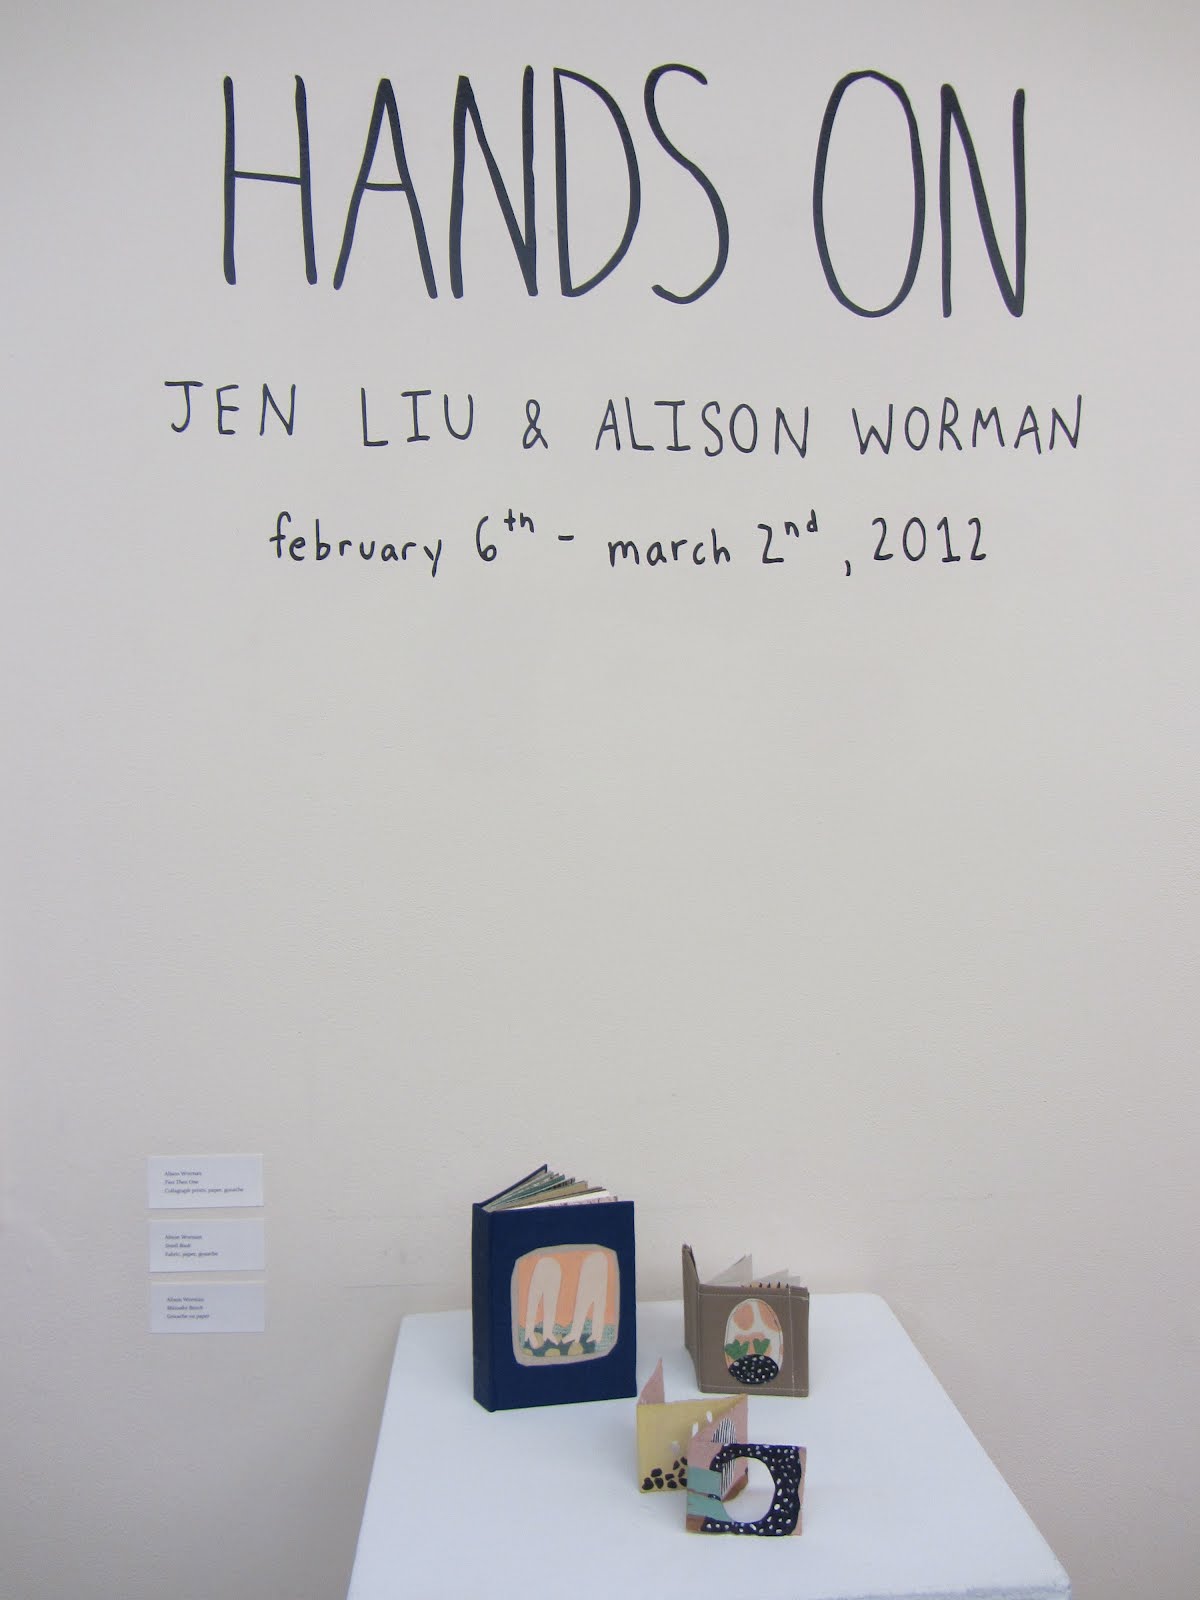 HANDS ON
JEN LIU & ALISON WORMAN
february 6th - march 2nd, 2012
Alison Worman
Two Then One
Collagraph prints, paper, gouache
Alison Worman
Fabric, paper, gouache
Alison Worman
Gouache on paper